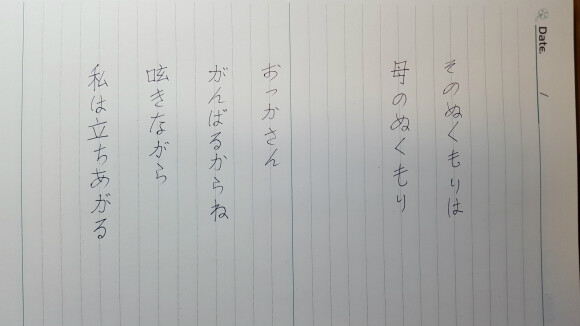 Date.      /
そのぬくもりは
母のぬくもり
おっかさん
がんばるからね
呟きながら
私は立ちあがる